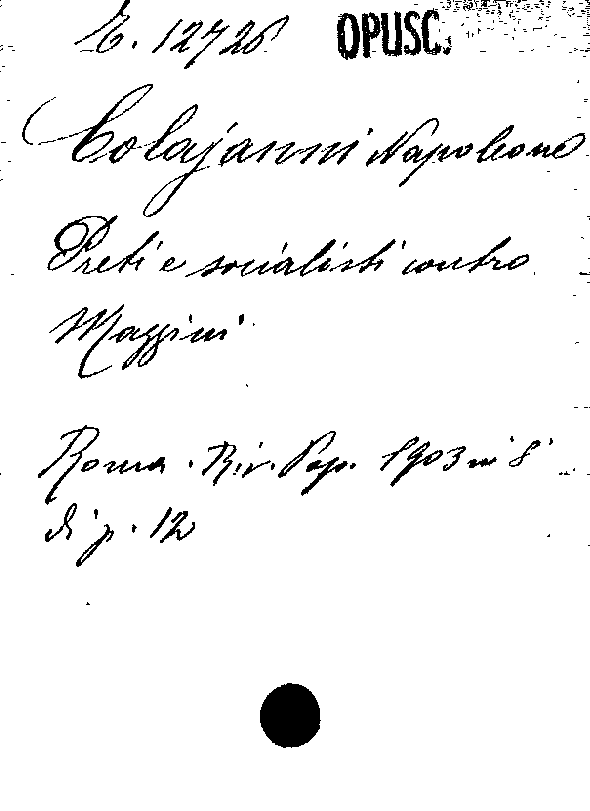 E. 12726 OPUSC.
Colajanni Napoleone
Preti e socialisti contro
Mazzini
Roma. Riv. Pop. 1903 in 8°
di p. 12